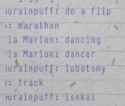 urainpuff: do a flip
: marathon
la Marion: dancing
la Marion: dancer
urainpuff: lobotomy
: track
urainpuff: isekai